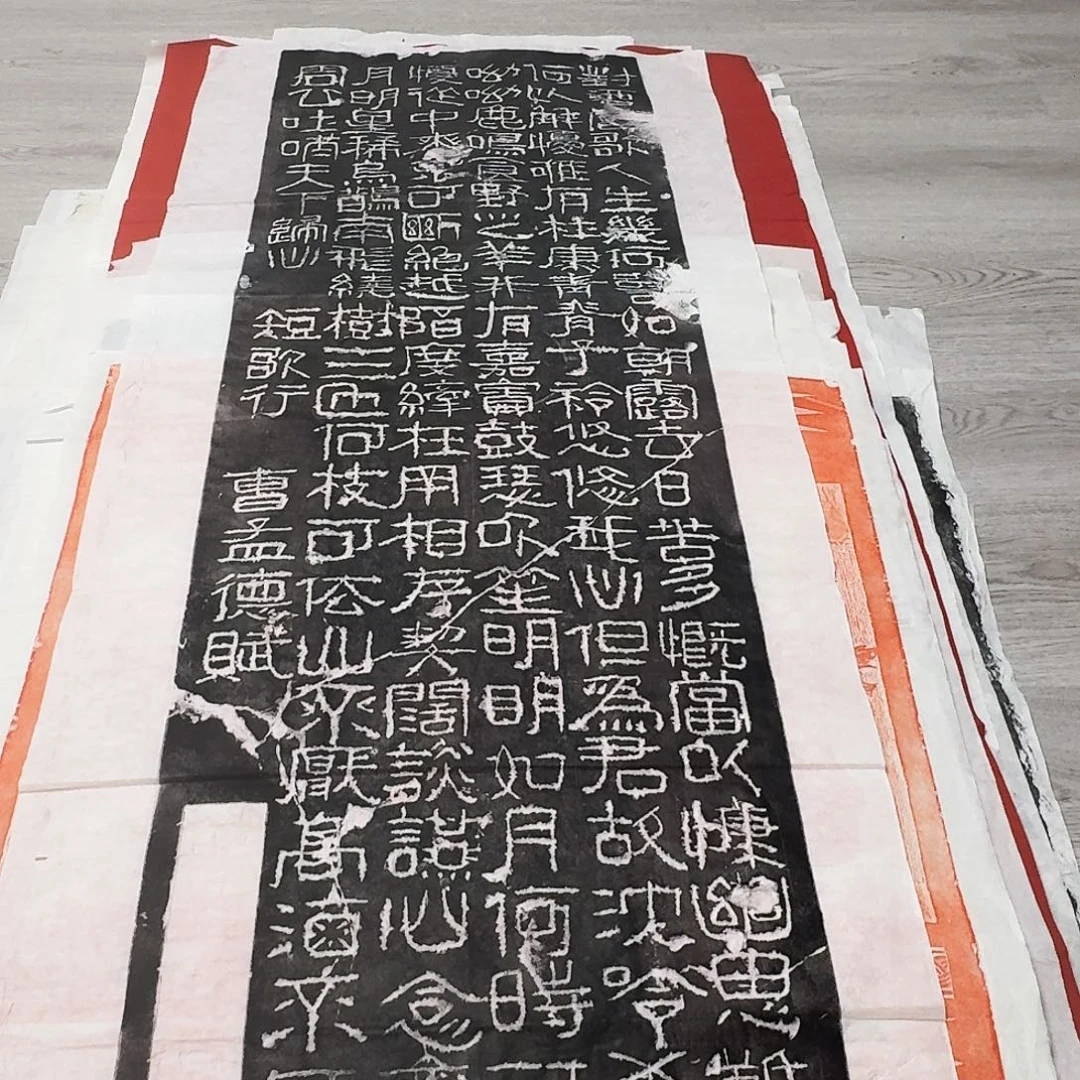 對酒當歌人生幾何譬如朝露去日苦多慨當以慷幽思難
何以解懮唯有杜康青青子衿悠悠我心但爲君故沈吟
呦呦鹿鳴食野之苹我有嘉賓鼓瑟吹笙明明如月何時可
懮從中來不可斷絕越陌度阡枉用相存契闊談讌心念
月明星稀烏鵲南飛繞樹三匝何枝可依山不厭高海不
周公吐哺天下歸心
短歌行
曹孟德賦